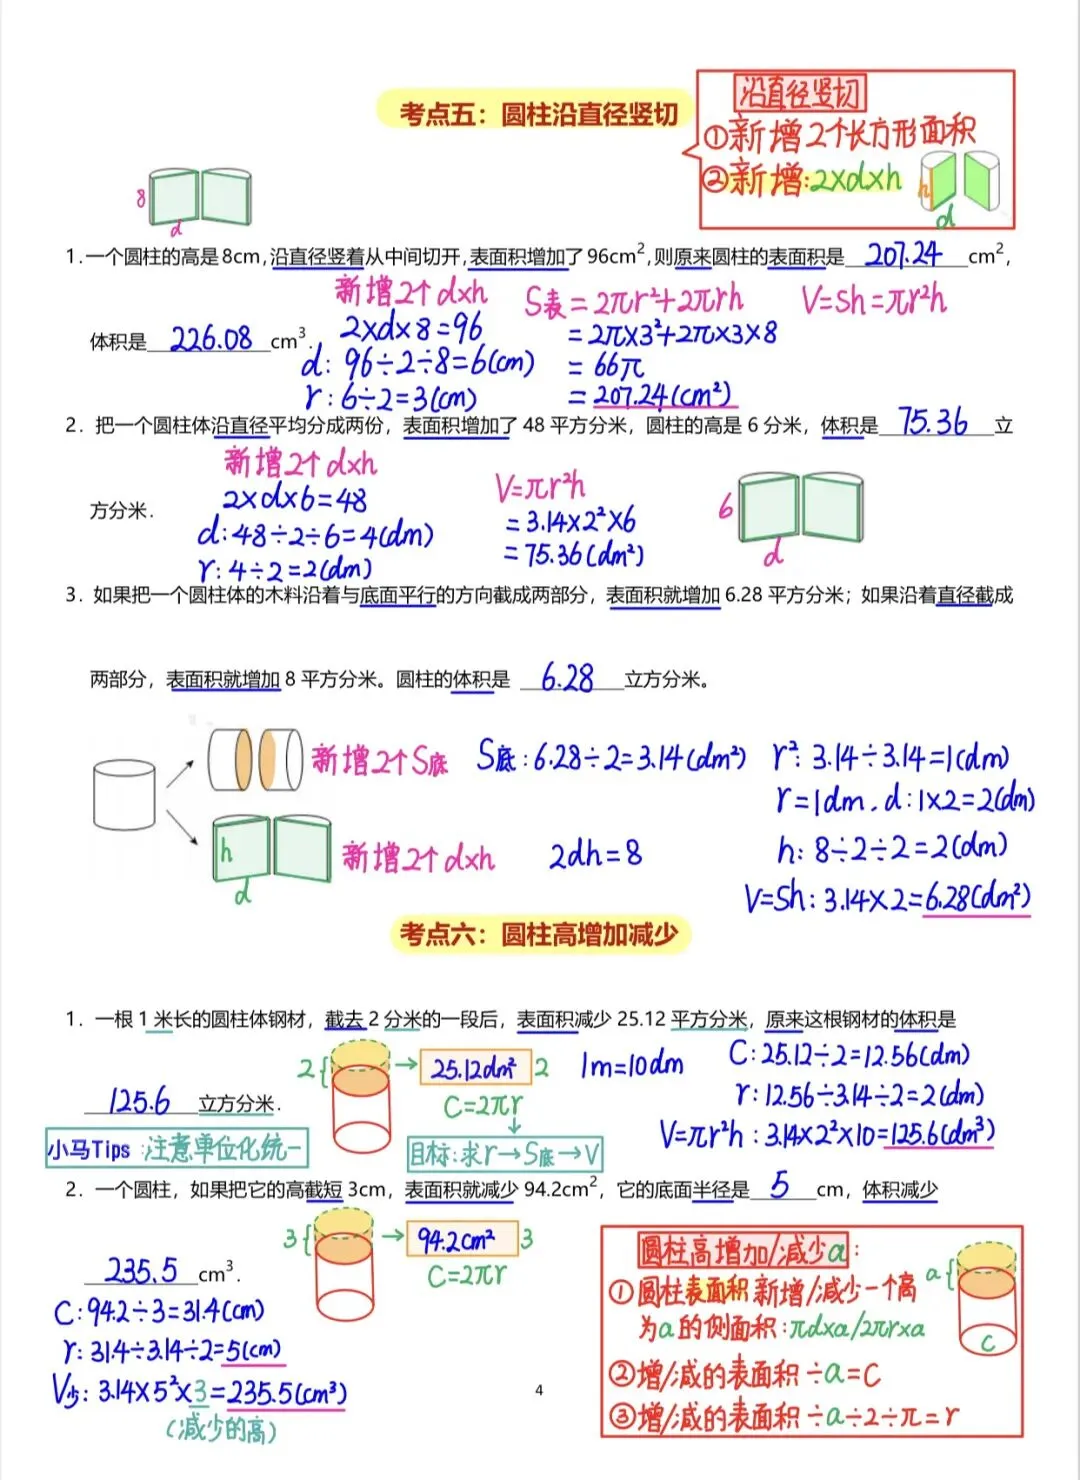 考点五：圆柱沿直径竖切
沿直径竖切
①新增2个长方形面积
②新增:2×d×h
h
d
8
d
1.一个圆柱的高是8cm,沿直径竖着从中间切开,表面积增加了96cm²,则原来圆柱的表面积是 207.24 cm²,
新增2个d×h
2×d×8=96
d: 96÷2÷8=6(cm)
r: 6÷2=3(cm)
S表=2πr²+2πrh
=2π×3²+2π×3×8
=66π
=207.24(cm²)
V=Sh=πr²h
体积是 226.08 cm³.
2. 把一个圆柱体沿直径平均分成两份，表面积增加了48平方分米，圆柱的高是6分米，体积是 75.36 立
方分米.
新增2个d×h
2×d×6=48
d:48÷2÷6=4(dm)
r: 4÷2=2(dm)
V=πr²h
=3.14×2²×6
=75.36(dm²)
6
d
3. 如果把一个圆柱体的木料沿着与底面平行的方向截成两部分，表面积就增加6.28平方分米；如果沿着直径截成
两部分，表面积就增加8平方分米。圆柱的体积是 6.28 立方分米。
新增2个S底
S底:6.28÷2=3.14(dm²)
r²: 3.14÷3.14=1(dm)
r=1dm. d:1×2=2(dm)
h
d
新增2个d×h
2dh=8
h: 8÷2÷2=2(dm)
V=Sh: 3.14×2=6.28(dm²)
考点六：圆柱高增加减少
1. 一根1米长的圆柱体钢材，截去2分米的一段后，表面积减少25.12平方分米，原来这根钢材的体积是
125.6 立方分米.
小马Tips:注意单位化统一
2{
25.12dm² 2
C=2πr
目标:求r→S底→V
1m=10dm
C:25.12÷2=12.56(dm)
r:12.56÷3.14÷2=2(dm)
V=πr²h:3.14×2²×10=125.6(dm³)
2. 一个圆柱，如果把它的高截短3cm，表面积就减少94.2cm²，它的底面半径是 5 cm，体积减少
235.5 cm³.
3{
94.2cm² 3
C=2πr
C:94.2÷3=31.4(cm)
r:31.4÷3.14÷2=5(cm)
V少: 3.14×5²×3=235.5(cm³)
(减少的高)
圆柱高增加/减少a:
①圆柱表面积新增/减少一个高
为a的侧面积:πd×a/2πr×a
②增/减的表面积÷a=C
③增/减的表面积÷a÷2÷π=r
a{
C
4